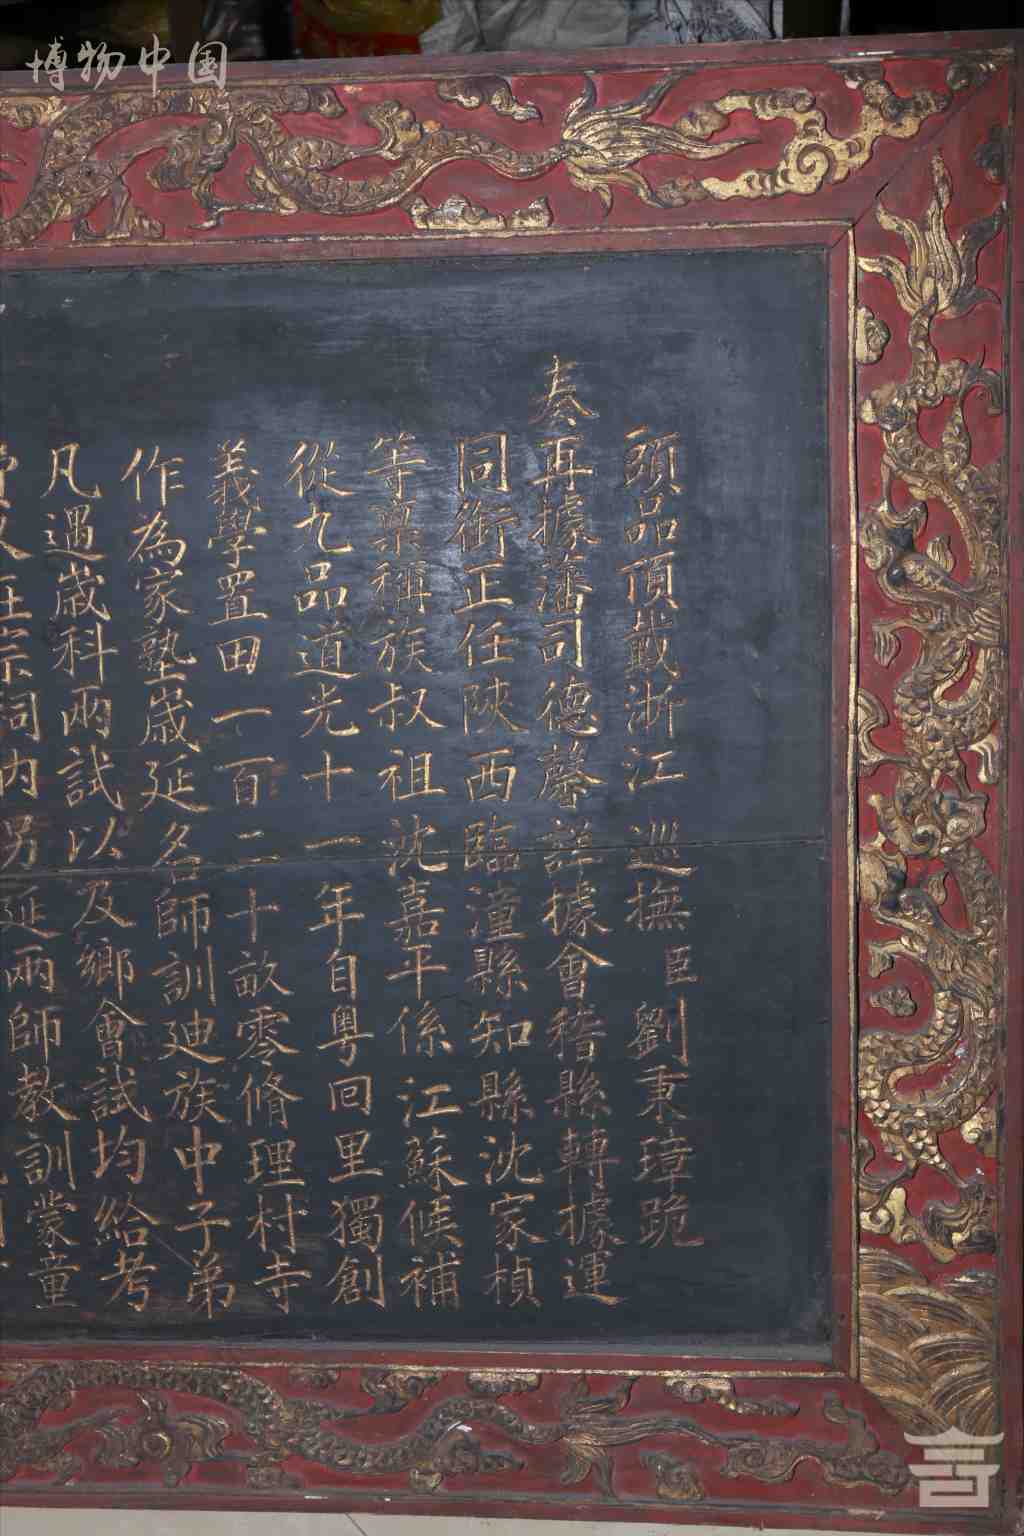 博物中国
頭品頂戴浙江巡撫臣劉秉璋跪
奏再據藩司德馨詳據會稽縣轉據運
同銜正任陝西臨潼縣知縣沈家楨
等稟稱族叔祖沈嘉平係江蘇候補
從九品道光十一年自粵回里獨創
義學置田一百二十畝零脩理村寺
作為家塾歲延名師訓迪族中子弟
凡遇歲科兩試以及鄉會試均給考
費又在宗祠內另延兩師教訓蒙童